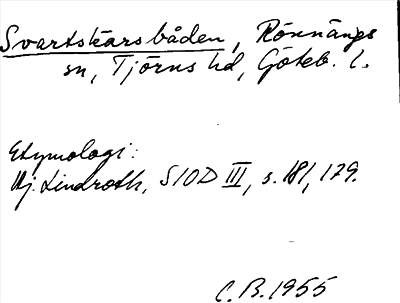 Svartskärsbåden, Rönnängs
sn, Tjörns hd, Göteb. l.
Etymologi:
Hj. Lindroth, SIOD III, s. 181, 129.
C.B. 1955